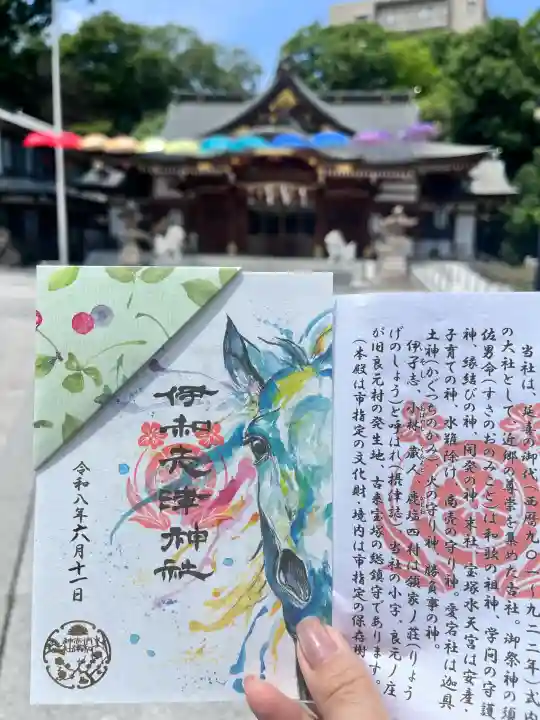 伊和志津神社
令和八年六月十一日
当社は、延喜の御代(西暦九〇一~九二二年)式内
の大社として近郷の尊崇を集めた古社。御祭神の須
佐男命(すさのおのみこと)は和歌の祖神、学問の守護
神、縁結びの神、開発の神。末社、宝塚水天宮は安産・
子育ての神、水難除け、商売の守り神。愛宕社は迦具
土神(かぐつちのかみ)火の守り神、勝負事の神。
伊孑志、小林、蔵人、鹿塩四村は領家ノ荘(りょう
げのしょう)と呼ばれ(摂津誌)当社の小字、良元ノ庄
が旧良元村の発生地、古来宝塚の総鎮守であります。
(本殿は市指定の文化財・境内は市指定の保存樹